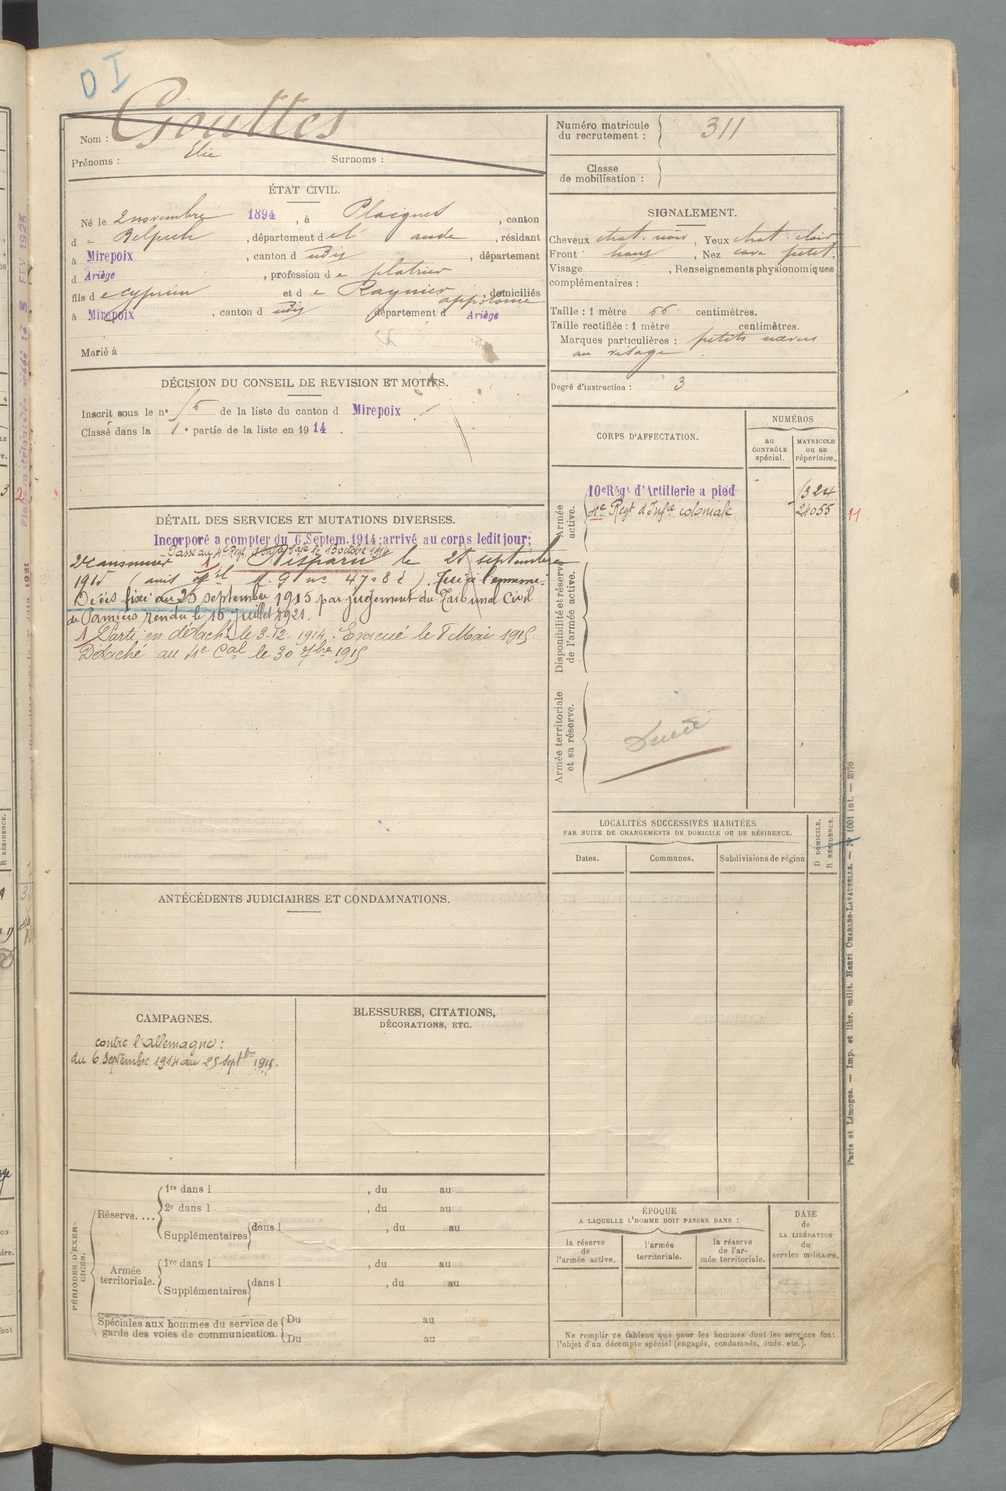 D I
Nom : Gouttes
Prénoms : Elie Surnoms :
Numéro matricule du recrutement : 311
Classe de mobilisation :
ÉTAT CIVIL.
Né le 2 novembre 1894, à Plaigne, canton
d Belpech, département de l' aude, résidant
à Mirepoix, canton d udit, département
d Ariège, profession de platrier
fils de Cyprien et de Raynier appolonie, domiciliés
à Mirepoix, canton d udit, département d Ariège
Marié à
SIGNALEMENT.
Cheveux chat. noir, Yeux chat. clair
Front haut, Nez cave petit.
Visage , Renseignements physionomiques
complémentaires :
Taille : 1 mètre 66 centimètres.
Taille rectifiée : 1 mètre centimètres.
Marques particulières : petits nævus
au visage.
Degré d'instruction : 3
DÉCISION DU CONSEIL DE REVISION ET MOTIFS.
Inscrit sous le n° de la liste du canton d Mirepoix
Classé dans la 1e partie de la liste en 1914.
CORPS D'AFFECTATION.
NUMÉROS
au CONTRÔLE spécial.
MATRICULE OU AU répertoire.
Armée active.
10e Régt d'Artillerie a pied 1324
4e Regt d'Infie coloniale 21055
11
Disponibilité et réserve de l'armée active.
Armée territoriale et sa réserve.
DÉTAIL DES SERVICES ET MUTATIONS DIVERSES.
Incorporé a compter du 6 Septem. 1914; arrivé au corps ledit jour;
Passé au 4e Regt le 15 octobre
2e canonnier. Disparu le 25 septembre
1915 (avis M. G n° ). Tué à l'ennemi.
Décès fixé au 25 septembre 1915 par jugement du Tribunal Civil
de Pamiers rendu le 15 juillet 1921.
Parti en détacht le 3-12-1914. Evacué le 8 Mai 1915.
Détaché au 4e Cal le 30 1915
LOCALITÉS SUCCESSIVES HABITÉES
PAR SUITE DE CHANGEMENTS DE DOMICILE OU DE RÉSIDENCE.
Dates.
Communes.
Subdivisions de région
D DOMICILE.
R RÉSIDENCE.
ANTÉCÉDENTS JUDICIAIRES ET CONDAMNATIONS.
CAMPAGNES.
contre l'allemagne :
du 6 Septembre 1914 au 25 Septbre 1915.
BLESSURES, CITATIONS,
DÉCORATIONS, ETC.
PÉRIODES D'EXERCICES.
Réserve....
1re dans l , du au
2e dans l , du au
Supplémentaires dans l , du au
Armée territoriale.
1re dans l , du au
Supplémentaires dans l , du au
Spéciales aux hommes du service de garde des voies de communication.
Du au
Du au
ÉPOQUE
A LAQUELLE L'HOMME DOIT PASSER DANS :
la réserve de l'armée active.
l'armée territoriale.
la réserve de l'armée territoriale.
DATE de LA LIBÉRATION du service militaire.
Ne remplir ce tableau que pour les hommes dont les services font
l'objet d'un décompte spécial (engagés, condamnés, omis, etc.).
Paris et Limoges. — Imp. et libr. milit. Henri CHARLES-LAVAUZELLE. — N° 1001 int. — 2076